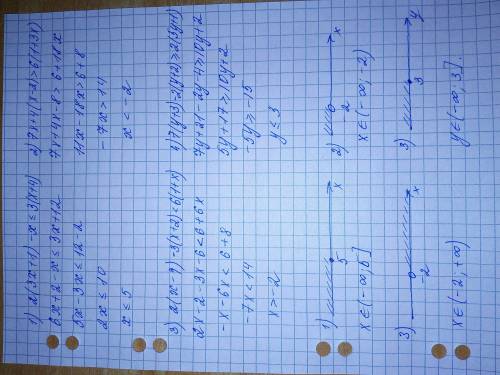 1) 2(3x+1)-x≤3(x+4)
6x+2-x≤3x+12
5x-3x≤12-2
2x≤10
x≤5
2) 7x+4(x-2)>6(1+3x)
7x+4x-8>6+18x
11x-18x>6+8
-7x>14
x<-2
3) 2(x-1)-3(x+2)<6(1+x)
2x-2-3x-6<6+6x
-x-6x<6+8
-7x<14
x>-2
4) 7(y+3)-2(y+2)≥2(5y+1)
7y+21-2y-4≥10y+2
5y+17≥10y+2
-5y≥-15
y≤3
1)
5
x
x∈(-∞;5]
2)
2
x
x∈(-∞;-2)
3)
-2
x
x∈(-2,+∞)
3)
3
y
y∈(-∞;3].